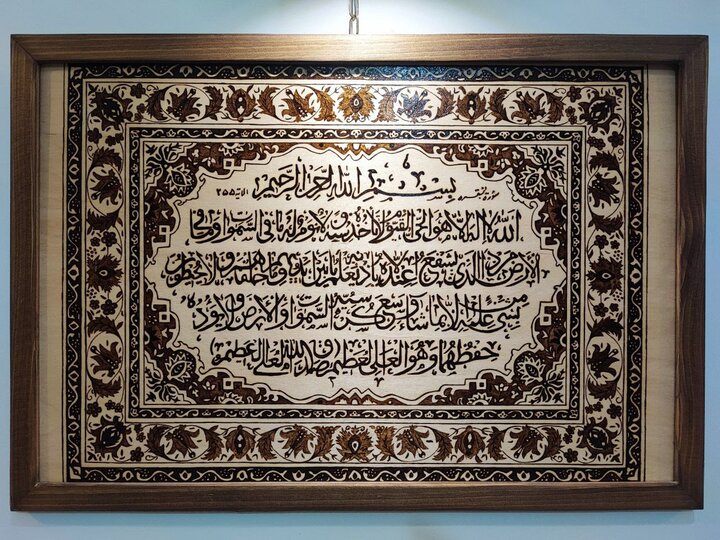 بسم الله الرحمن الرحيم
سورة البقره
الاية ٢٥٥
الله لا اله الا هو الحي القيوم لا تأخذه سنة ولا نوم له ما في السموات وما في
الارض من ذا الذي يشفع عنده الا باذنه يعلم ما بين ايديهم وما خلفهم ولا يحيطون
بشيء من علمه الا بما شاء وسع كرسيه السموات والارض ولا يؤده
حفظهما وهو العلي العظيم صدق الله العلي العظيم